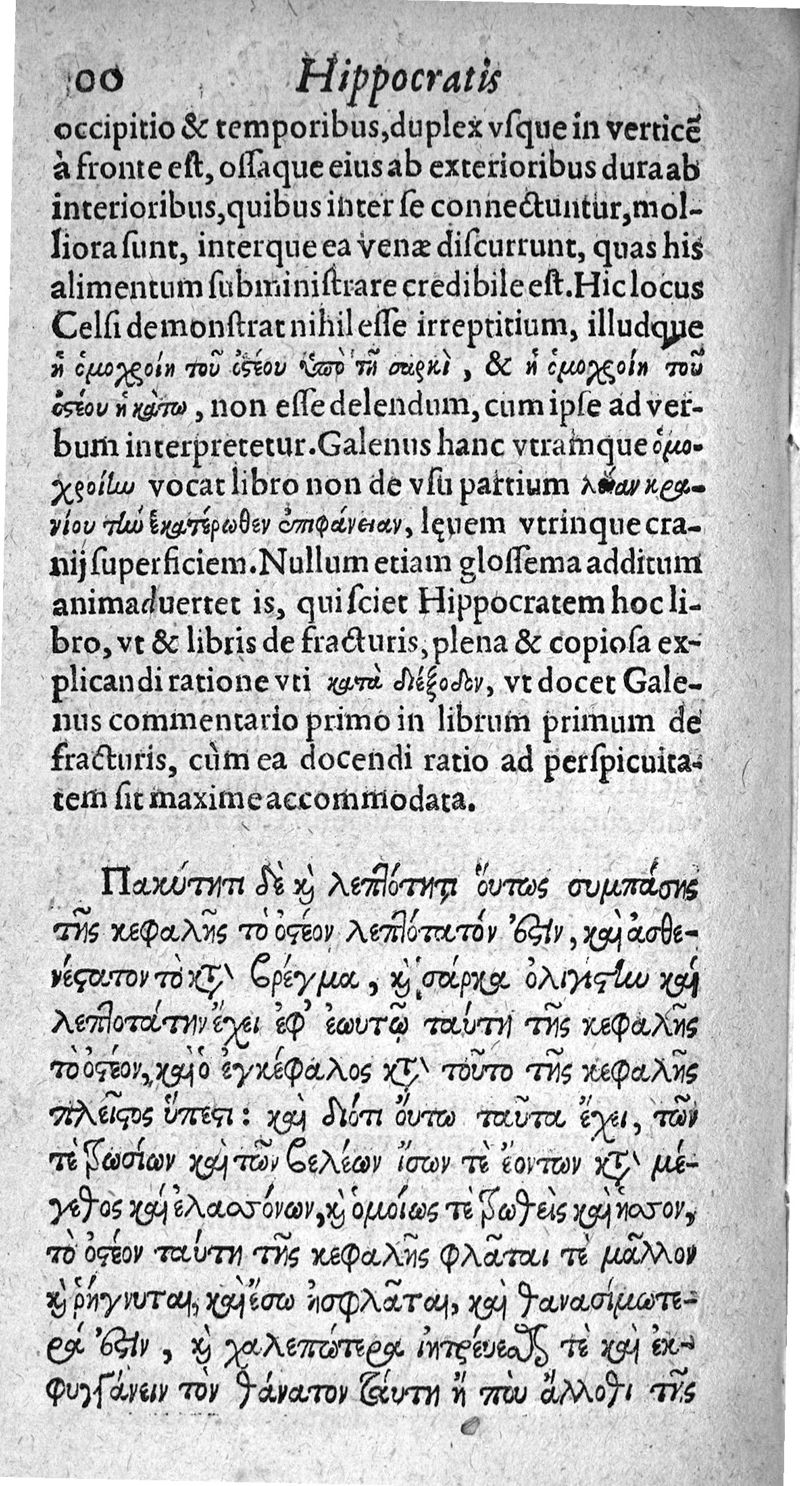 00 Hippocratis
occipitio & temporibus, duplex vſque in verticē
à fronte eſt, oſſaque eius ab exterioribus dura ab
interioribus, quibus inter ſe connectuntur, mol-
liora ſunt, interque ea venæ diſcurrunt, quas his
alimentum ſubminiſtrare credibile eſt. Hic locus
Celſi demonſtrat nihil eſſe irreptitium, illudque
ἡ ὁμοχροίη τοῦ ὀϛέου ὑπὸ τῇ σαρκὶ, & ἡ ὁμοχροίη τοῦ
ὀϛέου ἡ κάτω, non eſſe delendum, cum ipſe ad ver-
bum interpretetur. Galenus hanc vtramque ὁμο-
χροίην vocat libro non de vſu partium λείαν κρα-
νίου τὴν ἑκατέρωθεν ἐπιφάνειαν, lęuem vtrinque cra-
nij ſuperficiem. Nullum etiam gloſſema additum
animaduertet is, qui ſciet Hippocratem hoc li-
bro, vt & libris de fracturis, plena & copioſa ex-
plicandi ratione vti κατὰ διέξοδον, vt docet Gale-
nus commentario primo in librum primum de
fracturis, cùm ea docendi ratio ad perſpicuita-
tem ſit maxime accommodata.
Παχύτητι δὲ καὶ λεπτότητι ὅυτως συμπάσης
τῆς κεφαλῆς τὸ ὀϛέον λεπτότατόν ἐϛιν, καὶ ἀσθε-
νέϛατον τὸ κατὰ βρέγμα, καὶ σάρκα ὀλιγίϛην καὶ
λεπτοτάτην ἔχει ἐφ᾽ ἑωυτῷ ταύτῃ τῆς κεφαλῆς
τὸ ὀϛέον, καὶ ὁ ἐγκέφαλος κατὰ τοῦτο τῆς κεφαλῆς
πλεῖϛος ὕπεϛι: καὶ διότι ὅυτω ταῦτα ἔχει, τῶν
τὲ τρωσίων καὶ τῶν βελέων ἴσων τὲ ἐόντων κατὰ μέ-
γεθος καὶ ἐλασσόνων, καὶ ὁμοίως τὲ τρωθεὶς καὶ ἧσσον,
τὸ ὀϛέον ταύτῃ τῆς κεφαλῆς φλᾶται τὲ μᾶλλον
καὶ ῥήγνυται, καὶ ἔσω ἐσφλᾶται, καὶ θανασιμώτε-
ρά ἐϛιν, καὶ χαλεπώτερα ἰητρεύεσθαι τὲ καὶ ἐκ-
φυγγάνειν τὸν θάνατον ταύτῃ ἤ που ἄλλοθι τῆς